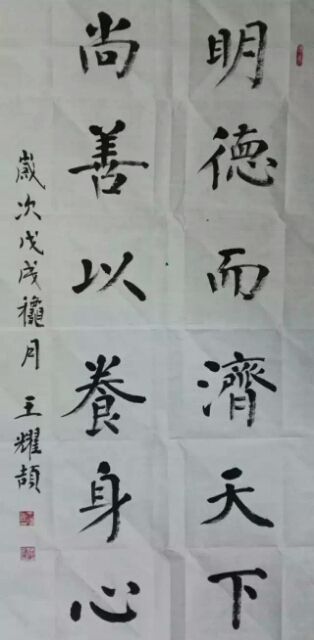 明德而濟天下
尚善以養身心
歲次戊戌龝月 王耀頡